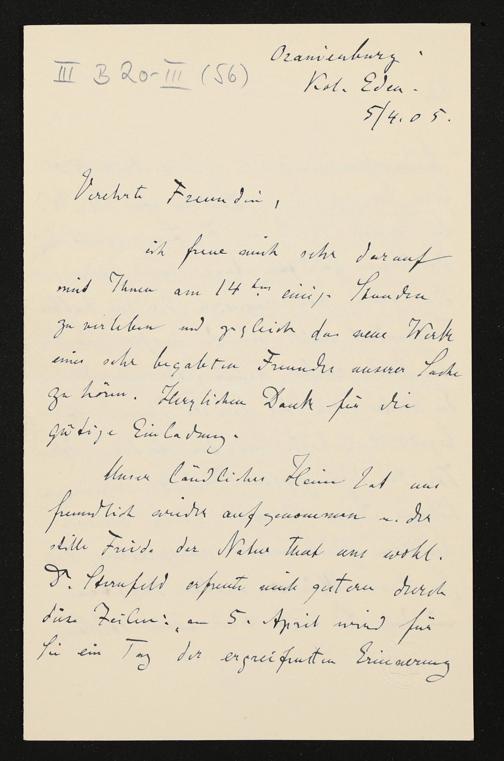 III B 20-III (56)
Oranienburg.
Kol. Eden.
5/4.05.
Verehrte Freundin,
ich freue mich sehr darauf
mit Ihnen am 14ten einige Stunden
zu verleben und zugleich das neue Werk
eines sehr begabten Freundes unserer Sache
zu hören. Herzlichen Dank für die
gütige Einladung.
Unser ländliches Heim hat uns
freundlich wieder aufgenommen u. der
stille Friede der Natur that uns wohl.
Dr. Sternfeld erfreute mich gestern durch
diese Zeilen: „am 5. April wird für
Sie ein Tag der ergreifendsten Erinnerung